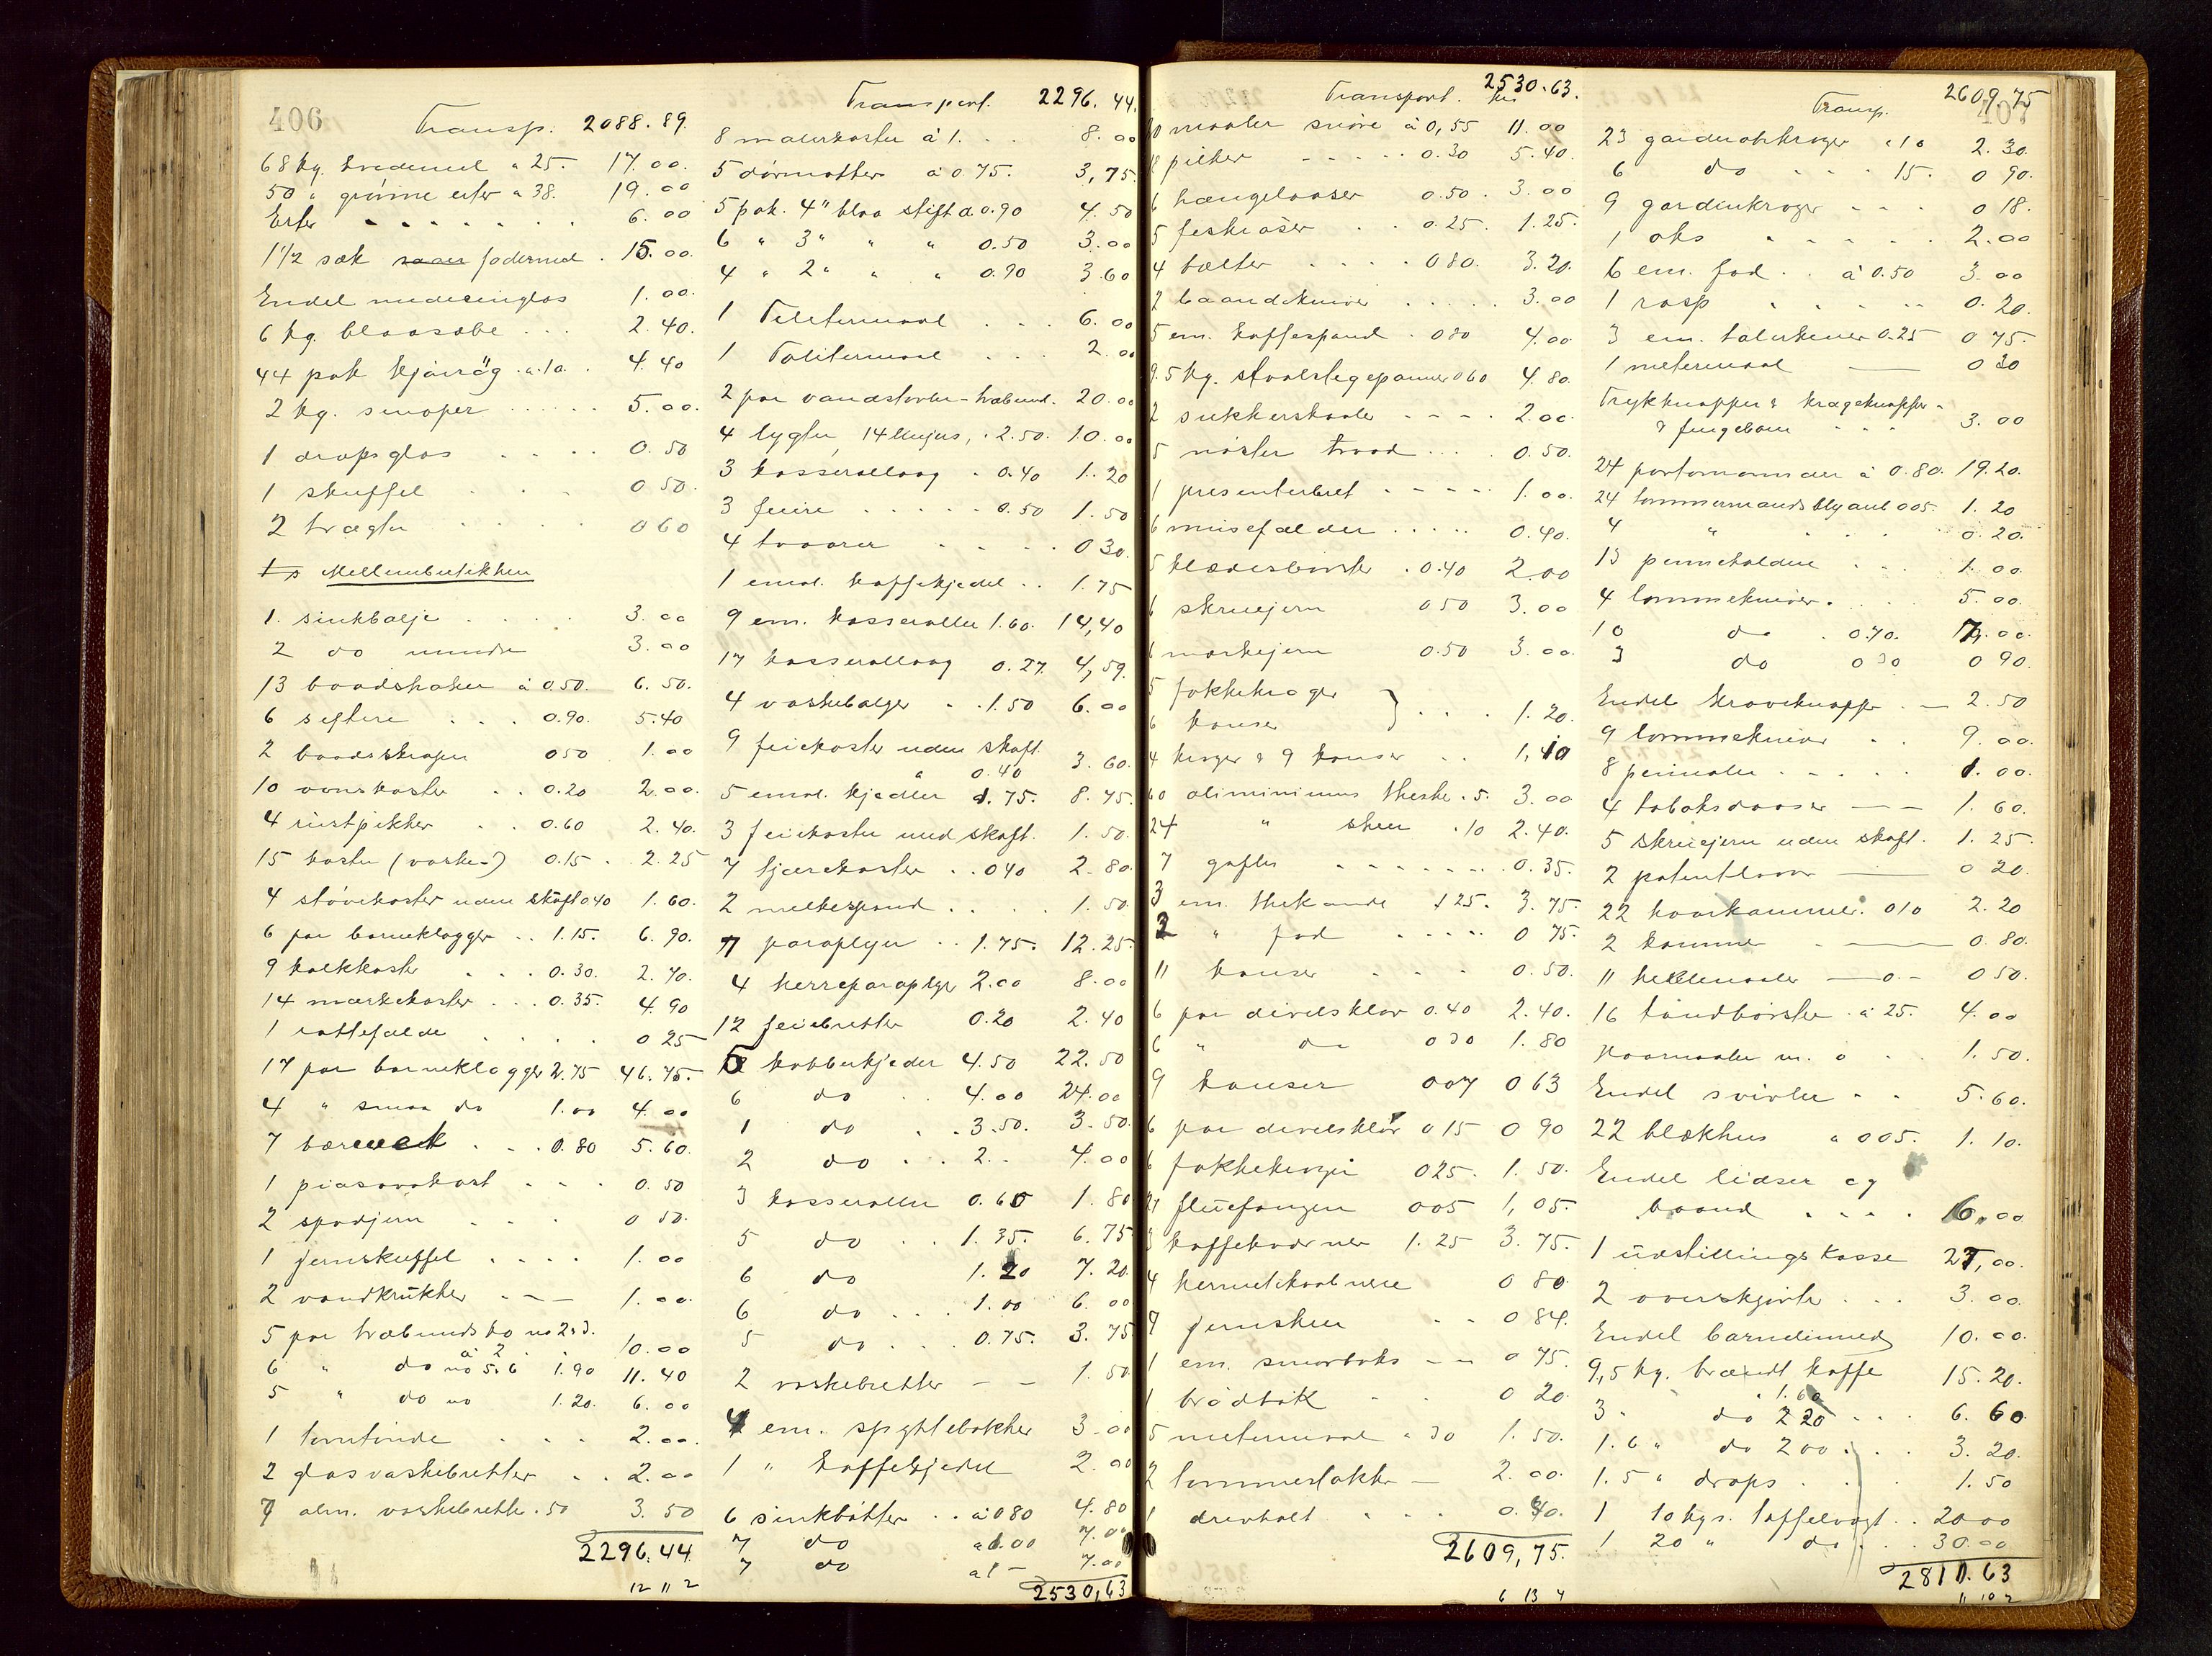 406
Transp. 2088.89.
68 kg. hvedemel a 25. 17.00.
50 " grønne erter a 38. 19.00
Erter 6.00
1 1/2 sæk fodermel 15.00.
Endel medecinglas 1.00.
6 kg. blaasæbe 2.40.
44 pak kjørrøg a 10. 4.40
2 kg. sinoper 5.00.
1 dropsglas 0.50
1 skuffel 0.50.
2 trægter 0 60
Mellembutikken
1. sinkbalje 3.00
2 do mindre 3.00
13 baadshaker á 0.50. 6.50.
6 seftere 0.90. 5.40
2 baadsskraper 0 50 1.00
10 ovnskoster 0.20 2.00.
4 rustpikker 0.60 2.40.
15 koster (vaske-) 0.15 2.25
4 støvekoster uden skaft 0 40 1.60.
6 par barneklogger 1.15. 6.90.
9 kalkkoste 0.30. 2.70.
14 mærkekoster 0.35. 4.90
1 rottefælde 0 25
17 par barneklogger 2.75 46.75.
4 " smaa do 1.00 4.00
7 0.80 5.60.
1 piasavakost 0.50
2 spadjern 0 50.
1 jernskuffel 1.00
2 vandkrukker 1.00.
5 par træbundsko no 2 & 3. á 2 10.00
6 " do no 5 & 6 1.90 11.40
5 " do no 1.20. 6.00
1 tomtønde 2.00.
2 glasvaskebretter 2.00
7 alm. vaskebrette .50 3.50
2296.44
12 11 2
Transport. 2296.44.
8 malerkoster á 1. 8.00
5 dørmatter á 0.75. 3,75.
5 pak. 4" blaa stift a 0.90 4.50
6 " 3" " " 0.50 3.00
4 " 2" " " 0.90 3.60
1 6.00
1 2.00
2 par vandstøvler - træbund. 20.00
4 lygter, 14 linjers, 2.50. 10.00
3 kasserollaag 0.40 1.20
3 feiere 0.50 1.50
4 tvaarer 0 30.
1 emal. kaffekjedel 1.75
9 em. kasseroller 1.60. 14,40
17 kasserollaag 0.27. 4,59.
4 vaskebaljer 1.50 6.00
9 feiekoster uden skaft
a 0.40 3.60.
5 emal. kjedler 1.75. 8.75.
3 feiekoster med skaft. 1.50.
7 tjærekoster 0 40 2.80.
2 melkespand 1.50.
7 paraplyer 1.75. 12.25.
4 herreparaplyer 2.00 8.00
12 feiebretter 0.20 2.40
5 kobberkjedler 4.50 22.50
6 do 4.00 24.00
1 do 3.50. 3.50.
2 do 2.- 4.00
3 kasseroller 0.60 1.80
5 do 1.35. 6.75
6 do 1.20 7.20.
6 do 1.00 6.00
5 do 0.75. 3.75
2 vaskebretter 1.50
4 em. spyttebakker 3.00
1 " kaffekjedel 2.00
6 sinkbøtter á 0 80 4.80
7 do a 1.00 7.00
7 do a 1 - 7.00
2530,63
Transport. 2530.63.
maaler snøre á 0,55 11.00
18 pilker 0.30 5.40.
6 hængelaaser 0.50. 3.00
5 feskeøser 0.25. 1.25.
4 bælter 0 80. 3.20.
2 baandkniver 3.00
5 em. kaffespand 0 80 4.00
9.5 kg. staalstegepanner 0 60 4.80.
2 sukkerskaaler 2.00.
5 nøster traad 0.50.
1 presenterbret 1.00.
6 musefælder 0.40.
5 klædesbørster 0.40 2.00
6 skruejern 0 50 3.00
6 mærkejern 0.50 3.00.
5 fokkekroger
6 kauser } 1.20.
4 kroger & 9 kauser 1,10
60 aliminiums theske 5. 3.00
24 " skeer 10 2.40.
7 gafler 0.35.
3 em. thekande 1 25. 3.75.
2 " fad 0 75.
11 kauser 0.50.
6 par divelsklør 0.40 2.40.
6 " do 0 30 1.80
9 kauser 0 07 0 63
6 par divelsklør 0 15 0 90
6 fokkekroger 0 25. 1.50.
21 fluefanger 0 05 1,05.
3 kaffekværner 1.25 3.75.
4 0 80
7 jernskeer 0 84.
1 em. smørboks 0 75.
1 brødbak 0 20
5 metermaal a 30 1.50.
2 tommerstokker 2.00.
1 drevholt 0.40.
2609,75.
6 13 4
Transp. 2609.75
407
23 garderobekroger a 10 2.30.
6 do 15. 0 90.
9 gardinkroger 0 18.
1 øks 2.00
6 em. fad á 0.50 3.00
1 rasp 0.20.
3 em. talerkener 0.25 0 75.
1 metermaal 0 30
Trykknapper & kraveknapper
& fingebøm 3.00
24 portomonnæer á 0.80. 19.20.
24 tømmermandsblyant 0 05. 1.20
4 " 0.20.
13 penneholdere 1.00.
4 lommekniver 5.00.
10 do 0.70. 7.00.
3 do 0 30 0 90.
Endel kraveknapper 2.50
9 lommekniver 9.00.
8 pennaler 1.00.
4 tobaksdaaser 1.60.
5 skruejern uden skaft. 1.25.
2 patentlaase 0 20.
22 haarkammer. 0 10 2.20
2 kamme 0.80.
11 heklenaaler 0 50.
16 tandbørster á 25. 4.00
Haarnaaler m. o 1.50.
Endel svivler 5.60.
22 blækhus a 0 05. 1.10.
Endel lidser og
baand 6.00
1 udstillingskasse 27,00.
2 overskjorte 3.00.
Endel barnelinned 10.00.
9,5 kg. brændt kaffe a 1.60 15.20.
3 " do 2 20 6.60.
1.6 " do 2 00 3.20.
1.5 " drops 1.50
1 10 kgs. taffelvægt 20 00
1 20 " do 30.00
2811.63
11 10 2